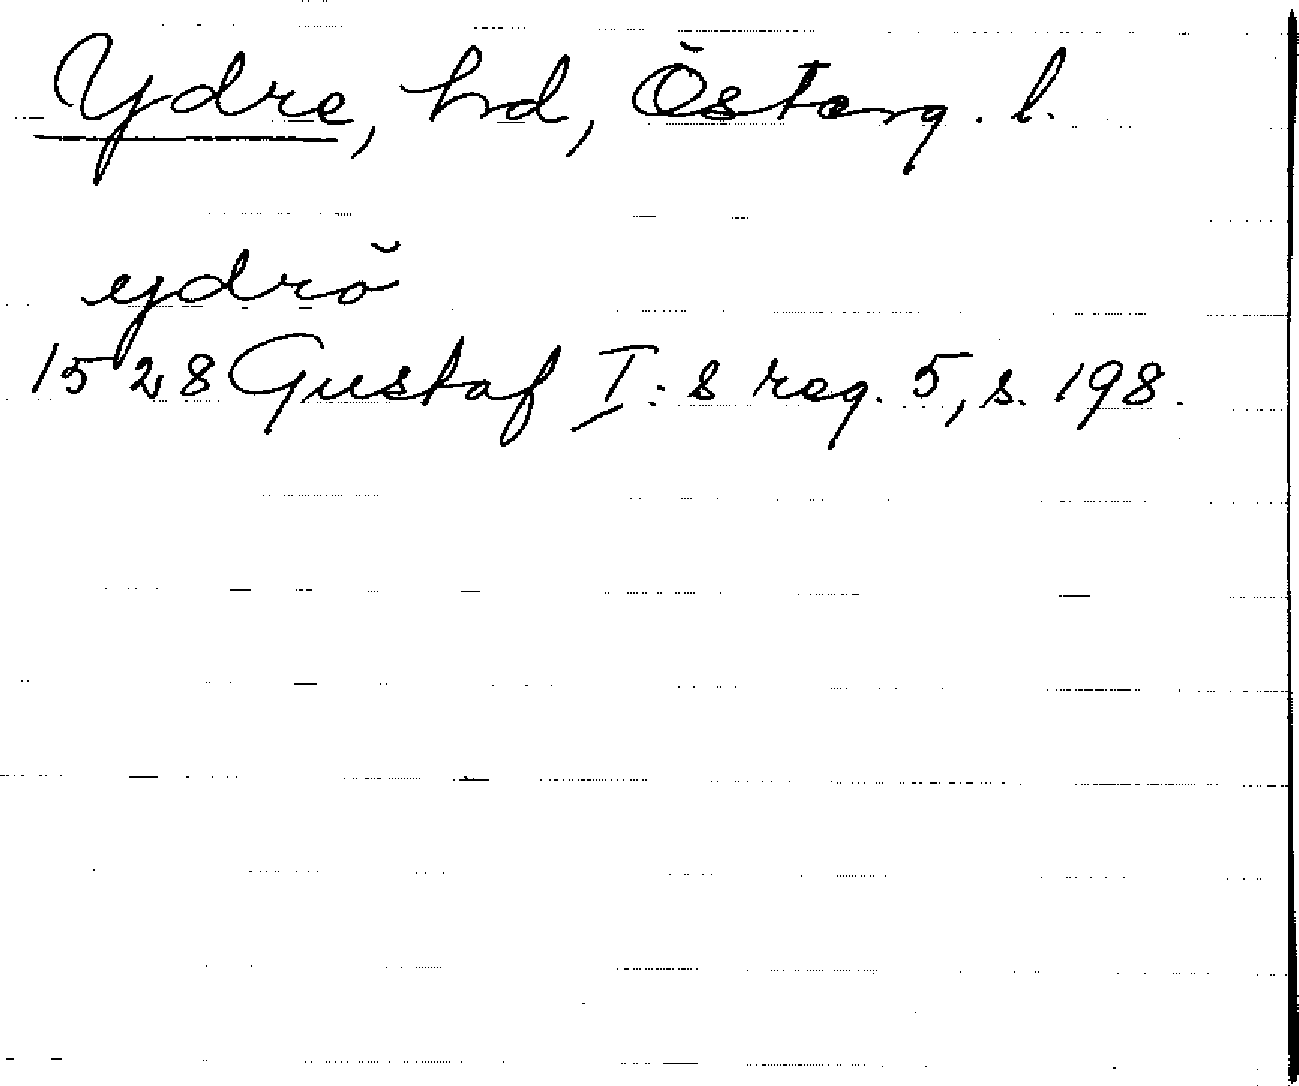 Ydre, hd, Österg. l.
ydrö
1528 Gustaf I:s reg. 5, s. 198.